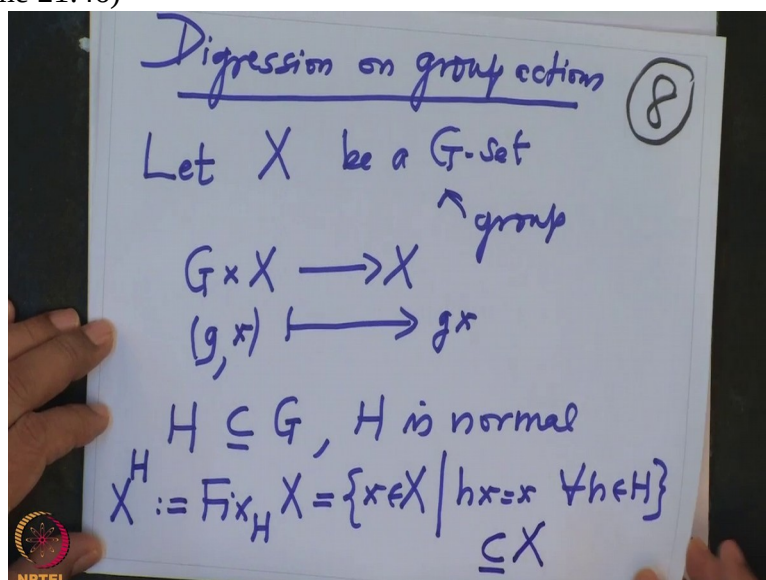 Digression on group actions
8
Let X be a G-set
↑ group
G × X ⟶ X
(g, x) ⟼ gx
H ⊆ G, H is normal
X^H := Fix_H X = {x∈X | hx=x ∀h∈H}
⊆ X
NPTEL